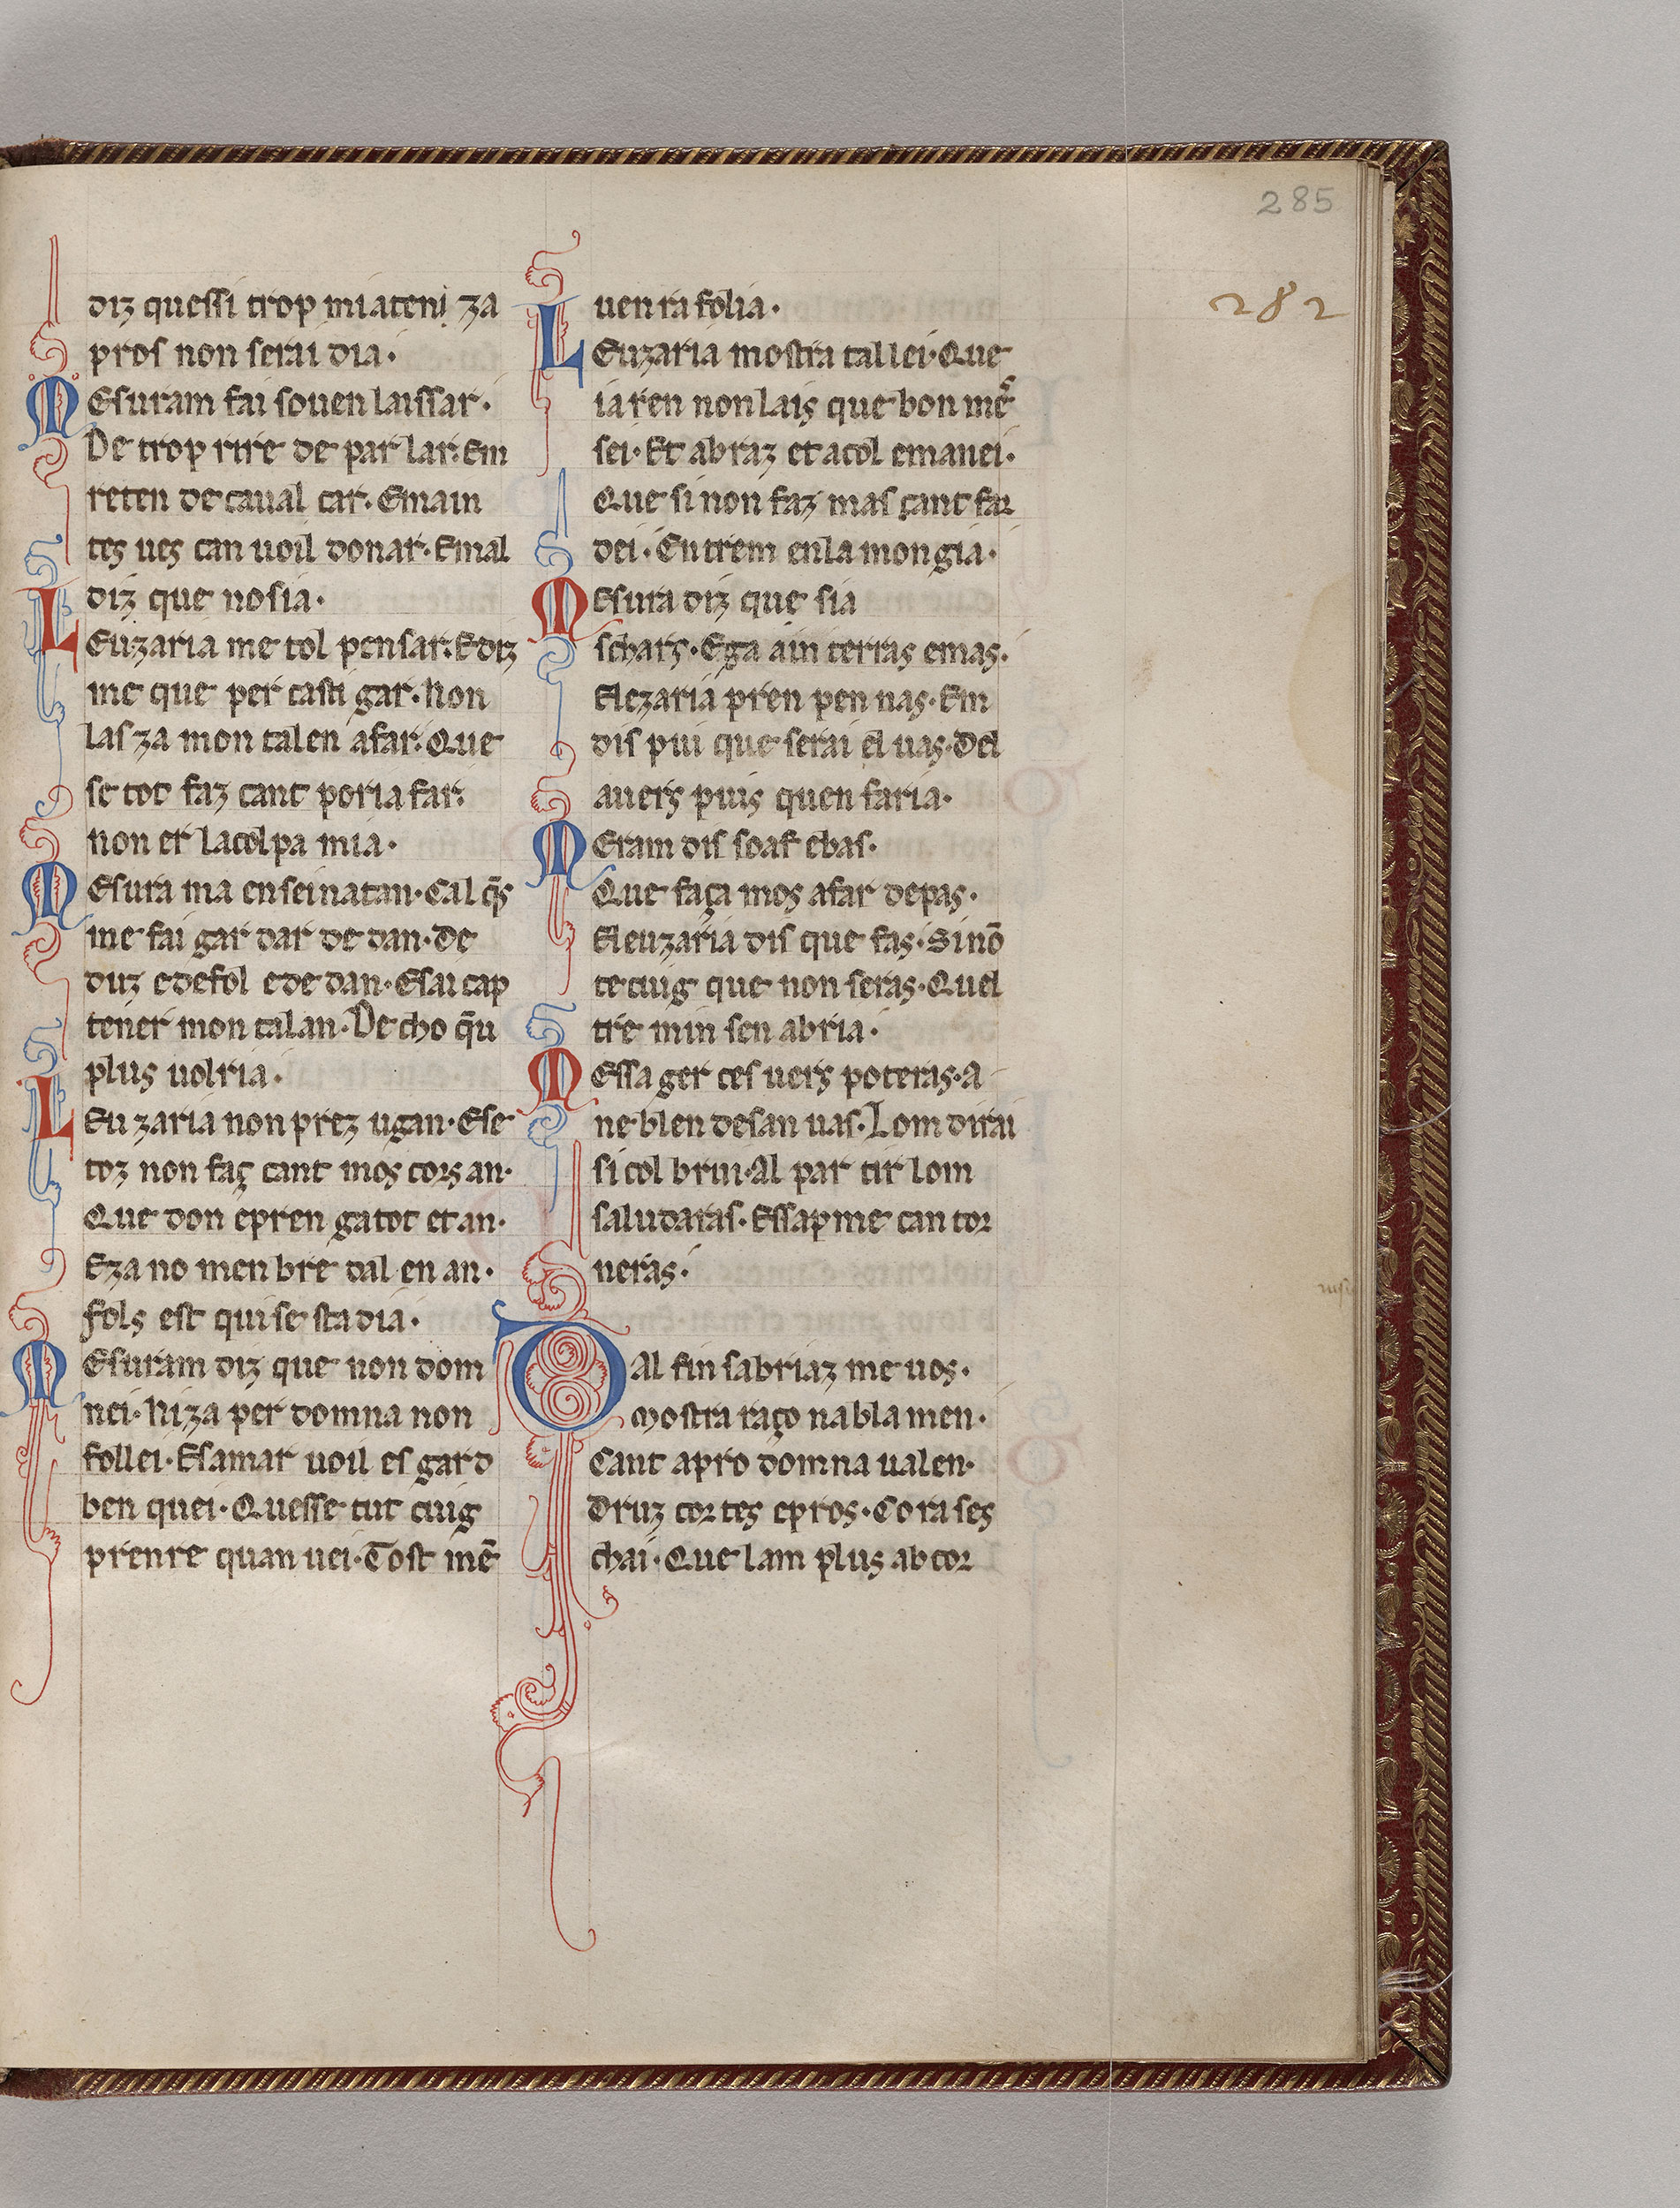 285
282
diz quessi trop mi ateni za
pros non serai dia·
Mesuram fai souen laissar·
De trop rire de par lar· Em
reten de caual car· Emain
tes ues can uoil donar· Emal
diz que nosia·
Leuzaria me tol pensar· Ediz
me que per casti gar· Non
las za mon talen afar· Que
se tot faz cant poria far·
non er lacolpa mia·
Mesura ma enseinatan· Cal q̄s
me fai gar dar de dan· De
duz edefol ede dan· Esai cap
tener mon talan· De cho q̄u
plus uolria·
Leu zaria non prez ugan· Ese
toz non faç cant mos cors an·
Que don epren gatot et an·
Eza no men bre tal en an·
fols est qui se sta dia·
Mesuram diz que non dom
nei· Ni za per domna non
follei· Esamar uoil es gard
ben quei· Quesse tut cuig
prenre quan uei· Tost mē
uen ra folia·
Leuzaria mostra tal lei· Que
ia ren non lais que bon mē
sei· Et abraz et acol emanei·
Que si non faz mas çant far
dei· Entrem enla mongia·
Mesura diz que sia
schars· Ega ain terras emas·
Elezaria pren pen nas· Em
dis piui que serai el uas· Del
auers puis quen faria·
Meram dis soaf ebas·
Que faça mos afar de pas·
Eleuzaria dis que fas· Sinō
te cuig que non seras· Quel
tre min sen abria·
Messa ger tes uers poteras· A
neblen desan uas· Lom dirai
si col brui· Al par tir lom
saludaras· Essap me can tor
neras·
Tal fin sabriaz me uos·
Mostra raço na bla men·
Cant apro domna ualen·
Druz cortes epros· Cora ses
chai· Que lam plus ab cor